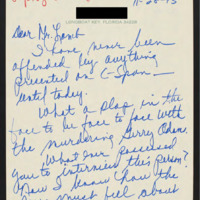 11-28-95
LONGBOAT KEY, FLORIDA 34228
Dear Mr. Lamb
I have never been
offended by anything
presented on C-Span —
until today.
What a slap in the
face to be face to face with
the murdering Gerry Adams.
What ever possessed
you to interview this person?
Now I know how the
must feel about